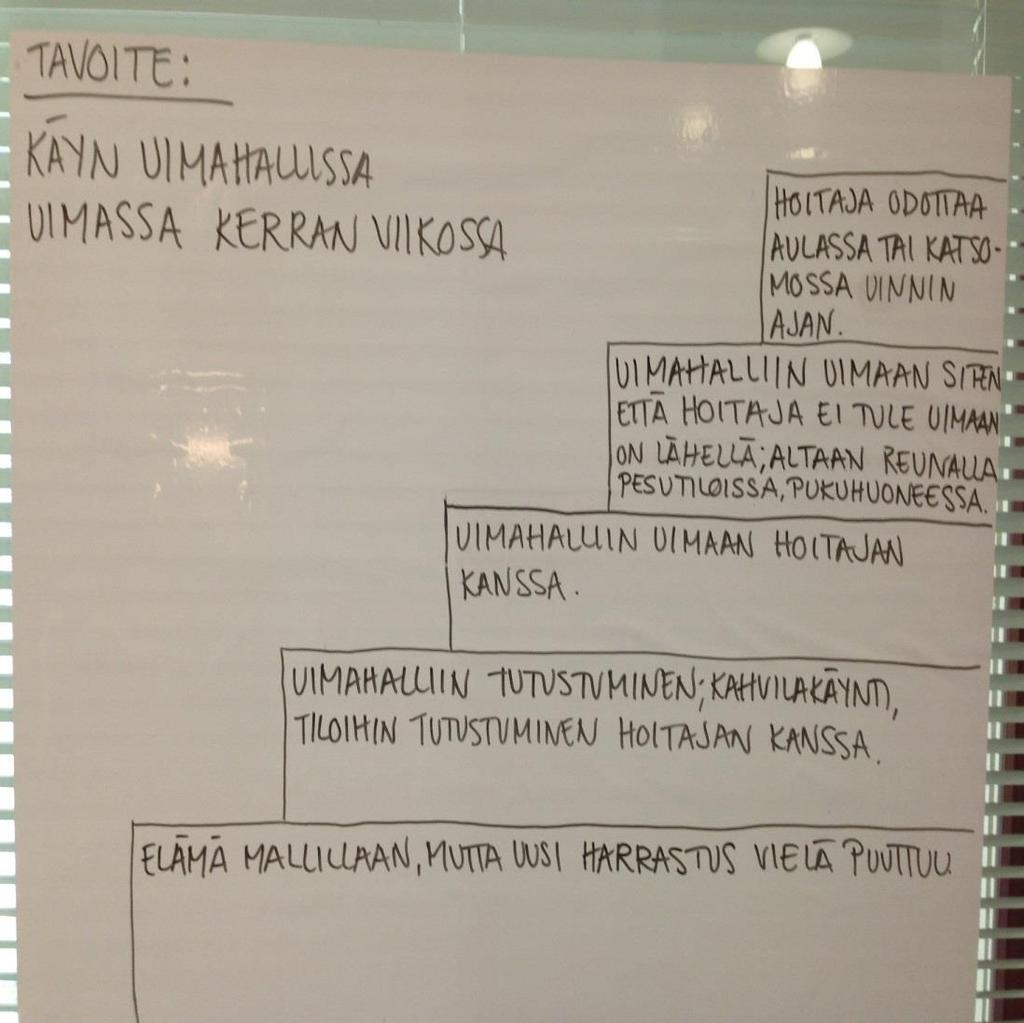 TAVOITE:
KÄYN UIMAHALLISSA
UIMASSA KERRAN VIIKOSSA
HOITAJA ODOTTAA
AULASSA TAI KATSO-
MOSSA UINNIN
AJAN.
UIMAHALLIIN UIMAAN SITEN
ETTÄ HOITAJA EI TULE UIMAAN
ON LÄHELLÄ; ALTAAN REUNALLA
PESUTILOISSA, PUKUHUONEESSA.
UIMAHALLIIN UIMAAN HOITAJAN
KANSSA.
UIMAHALLIIN TUTUSTUMINEN; KAHVILAKÄYNTI,
TILOIHIN TUTUSTUMINEN HOITAJAN KANSSA.
ELÄMÄ MALLILLAAN, MUTTA UUSI HARRASTUS VIELÄ PUUTTUU.